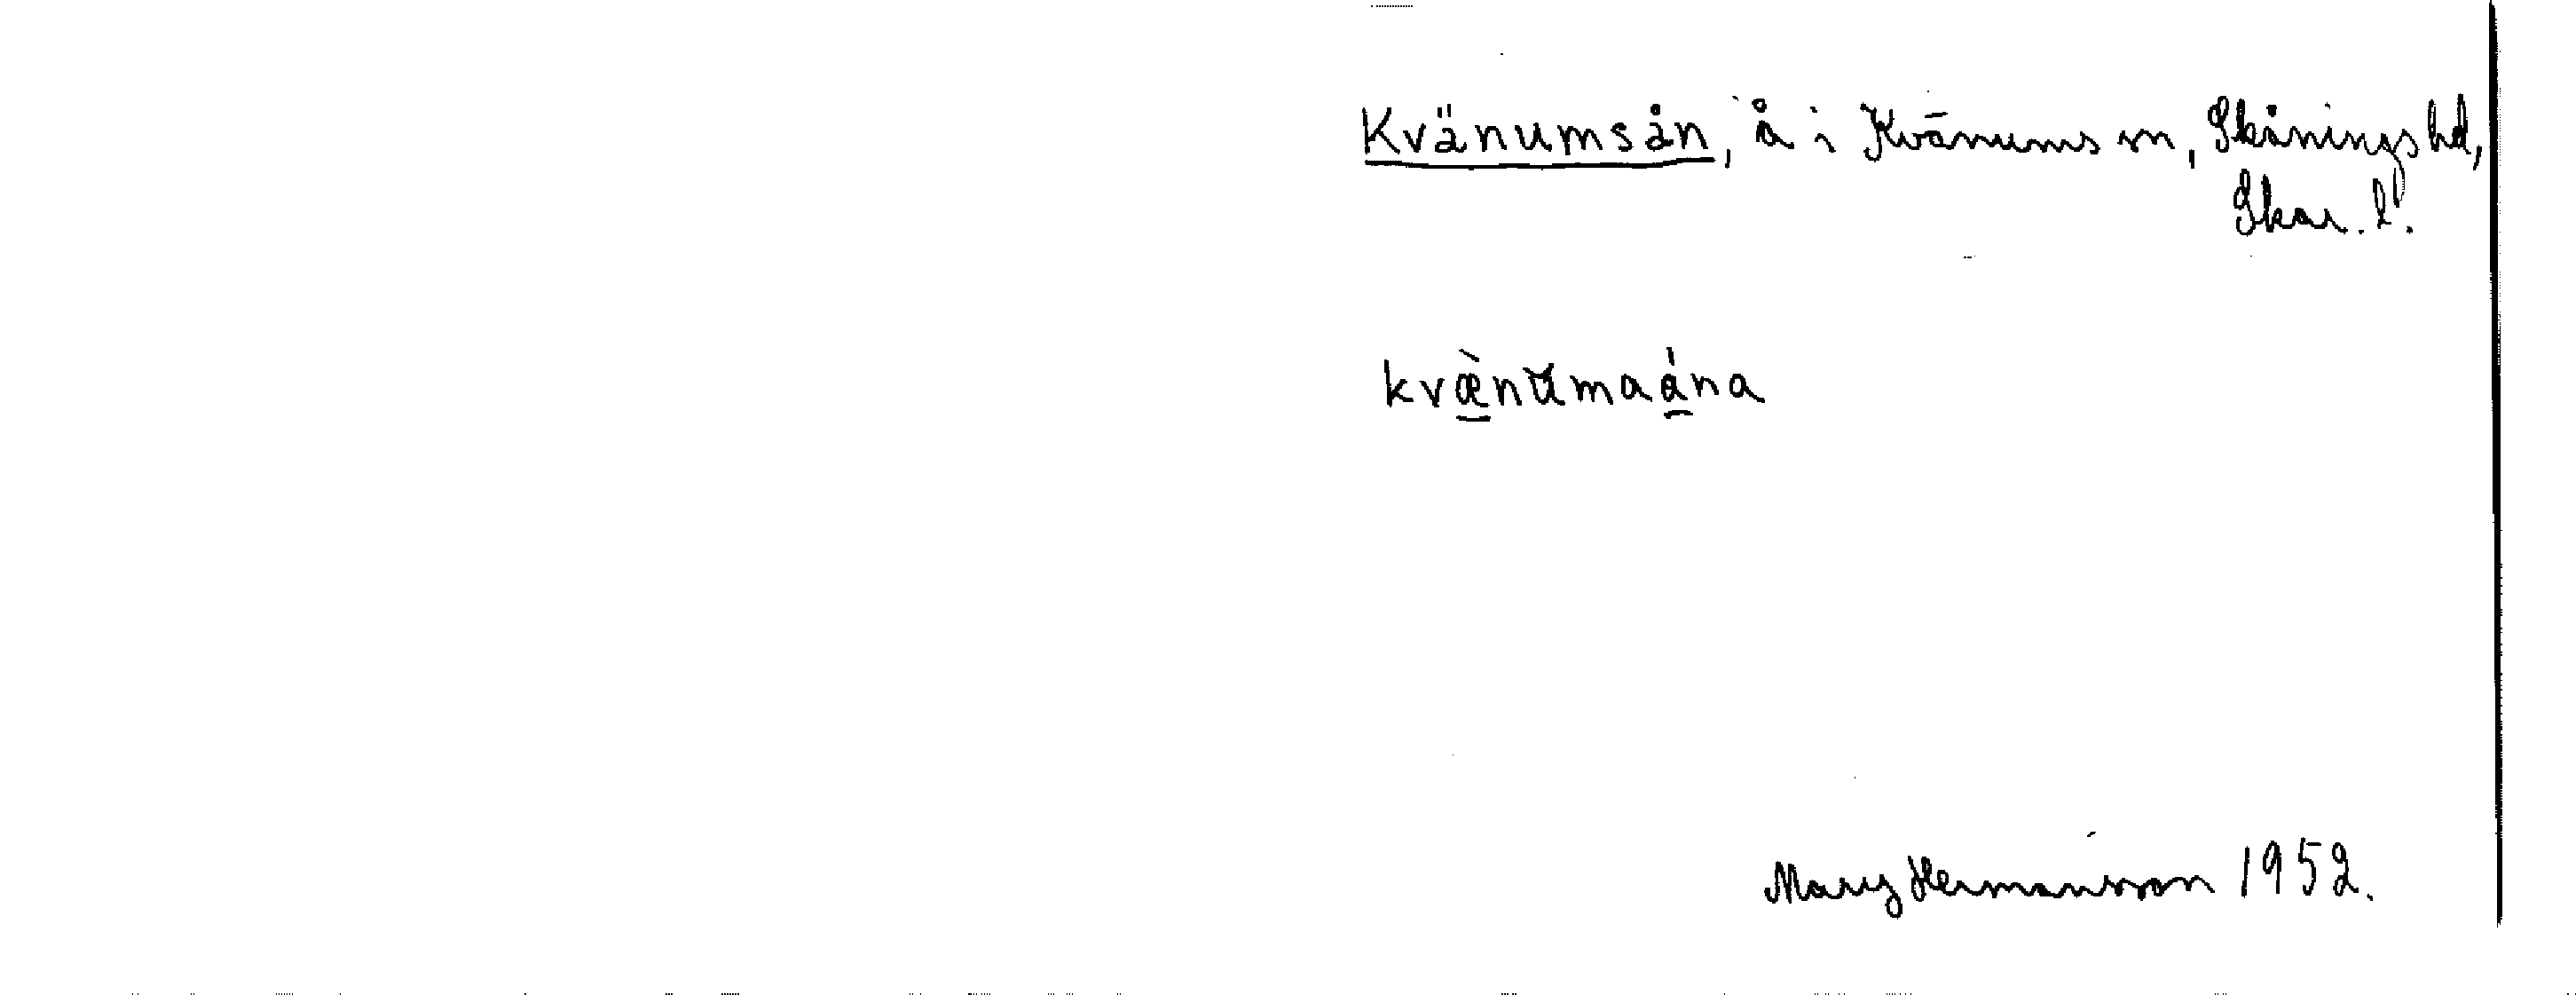 Kvänumsån, å i Kvänums sn, Skånings hd,
Skar. l.
kvæ̠̀nŭmaá̠na
Mary Hermansson 1952.